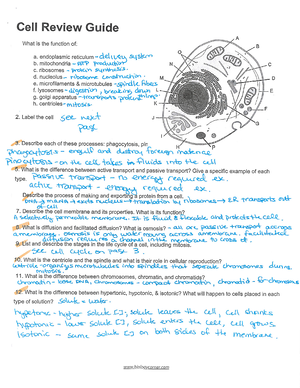 Cell Review Guide
What is the function of:
a. endoplasmic reticulum - delivery system
b. mitochondria - ATP production
c. ribosomes - protein synthesis
d. nucleolus - ribosome construction
e. microfilaments & microtubules - spindle fibers
f. lysosomes - digestion, breaking down
g. golgi apparatus - transports protein
h. centrioles - mitosis
2. Label the cell see next
page
3. Describe each of these processes: phagocytosis,
Phagocytosis - engulf and destroy foreign material
Pinocytosis - the cell takes in fluids into the cell
5. What is the difference between active transport and passive transport? Give a specific example of
each type.
Passive transport - no energy required ex.
active transport - energy required ex.
Describe the process of making and exporting a protein from a cell.
7. Describe the cell membrane and its properties. What is its function?
A selectively permeable membrane. It is fluid & flexible and protects the cell.
8. What is diffusion and facilitated diffusion? What is osmosis? - all are passive transport across
membranes. Osmosis is only water moving across a membrane, facilitated
diffusion requires a channel in the membrane to cross it.
9. List and describe the stages in the life cycle of a cell, including mitosis.
see cell cycle on page 3.
10. What is the centriole and the spindle and what is their role in cellular reproduction?
centrioles organize microtubules into spindles that separate chromosomes during
mitosis.
11. What is the difference between chromosomes, chromatin, and chromatids?
chromatin - loose DNA, chromosomes - compact chromatin, chromatid -
12. What is the difference between hypertonic, hypotonic, & isotonic? What will happen to cells placed in each
type of solution? solute & water
hypertonic - higher solute [], solute leaves the cell, cell shrinks
hypotonic - lower solute [], solute enters the cell, cell grows
Isotonic - same solute [] on both sides of the membrane.
www.biologycorner.com